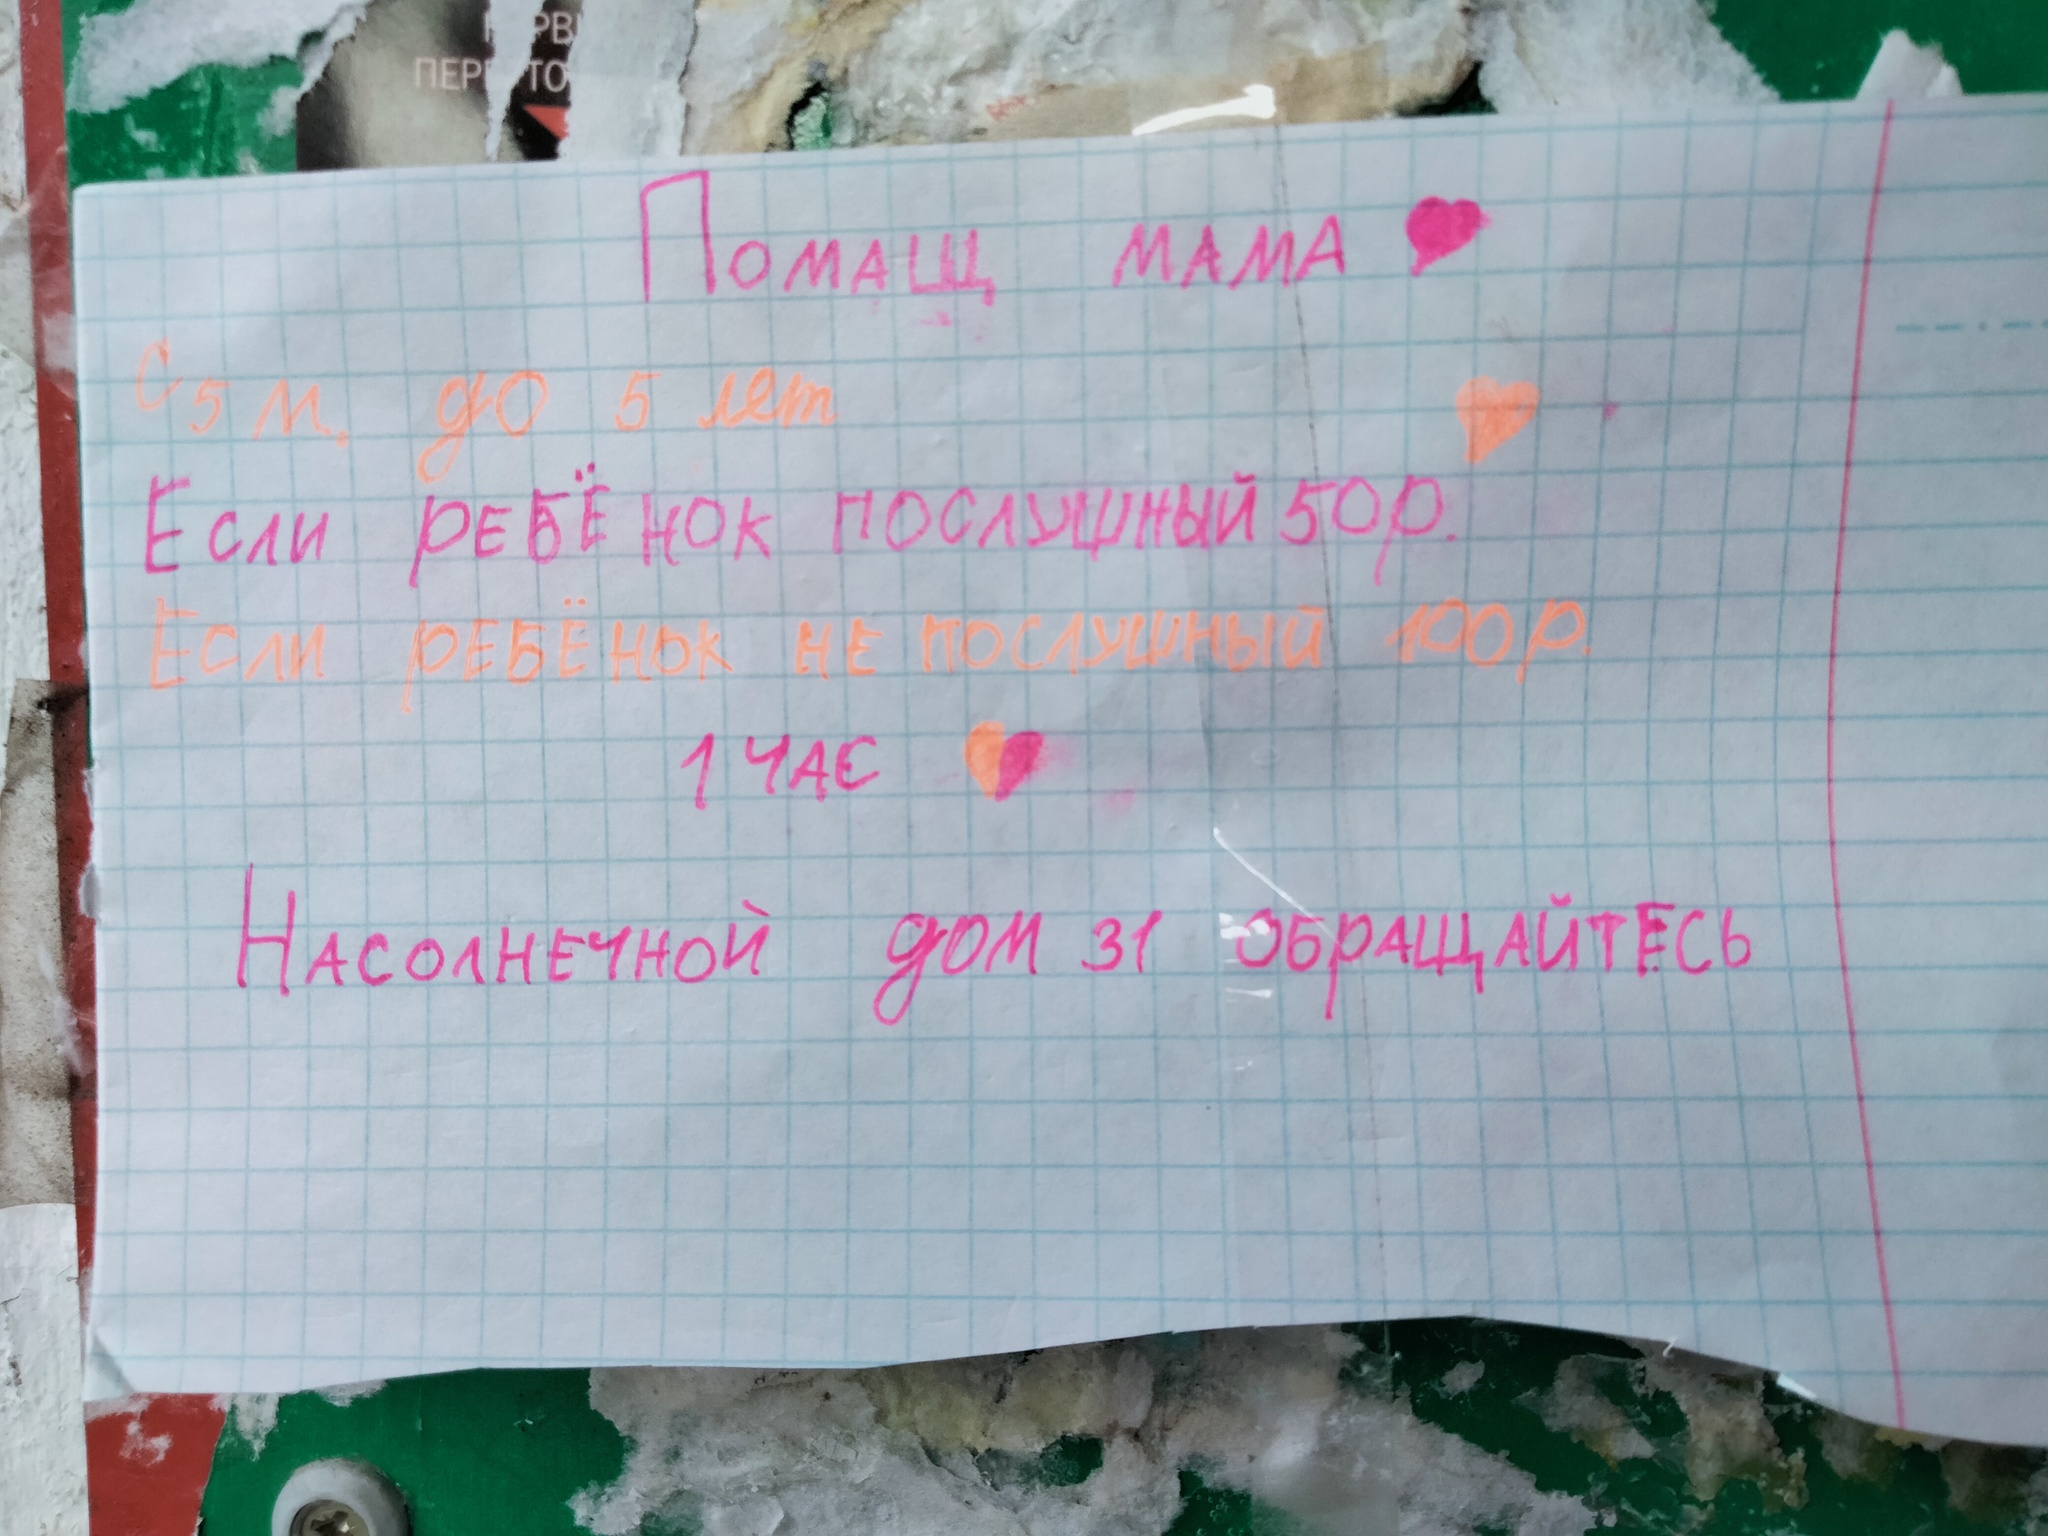 Помащ мама
с 5 м. до 5 лет
Если ребёнок послушный 50р.
Если ребёнок не послушный 100р.
1 час
Насолнечной дом 31 обращайтесь